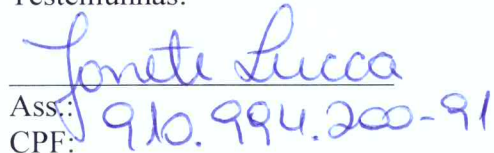 Testemunhas:
Jonete Lucca
Ass.:
CPF: 910.994.200-91